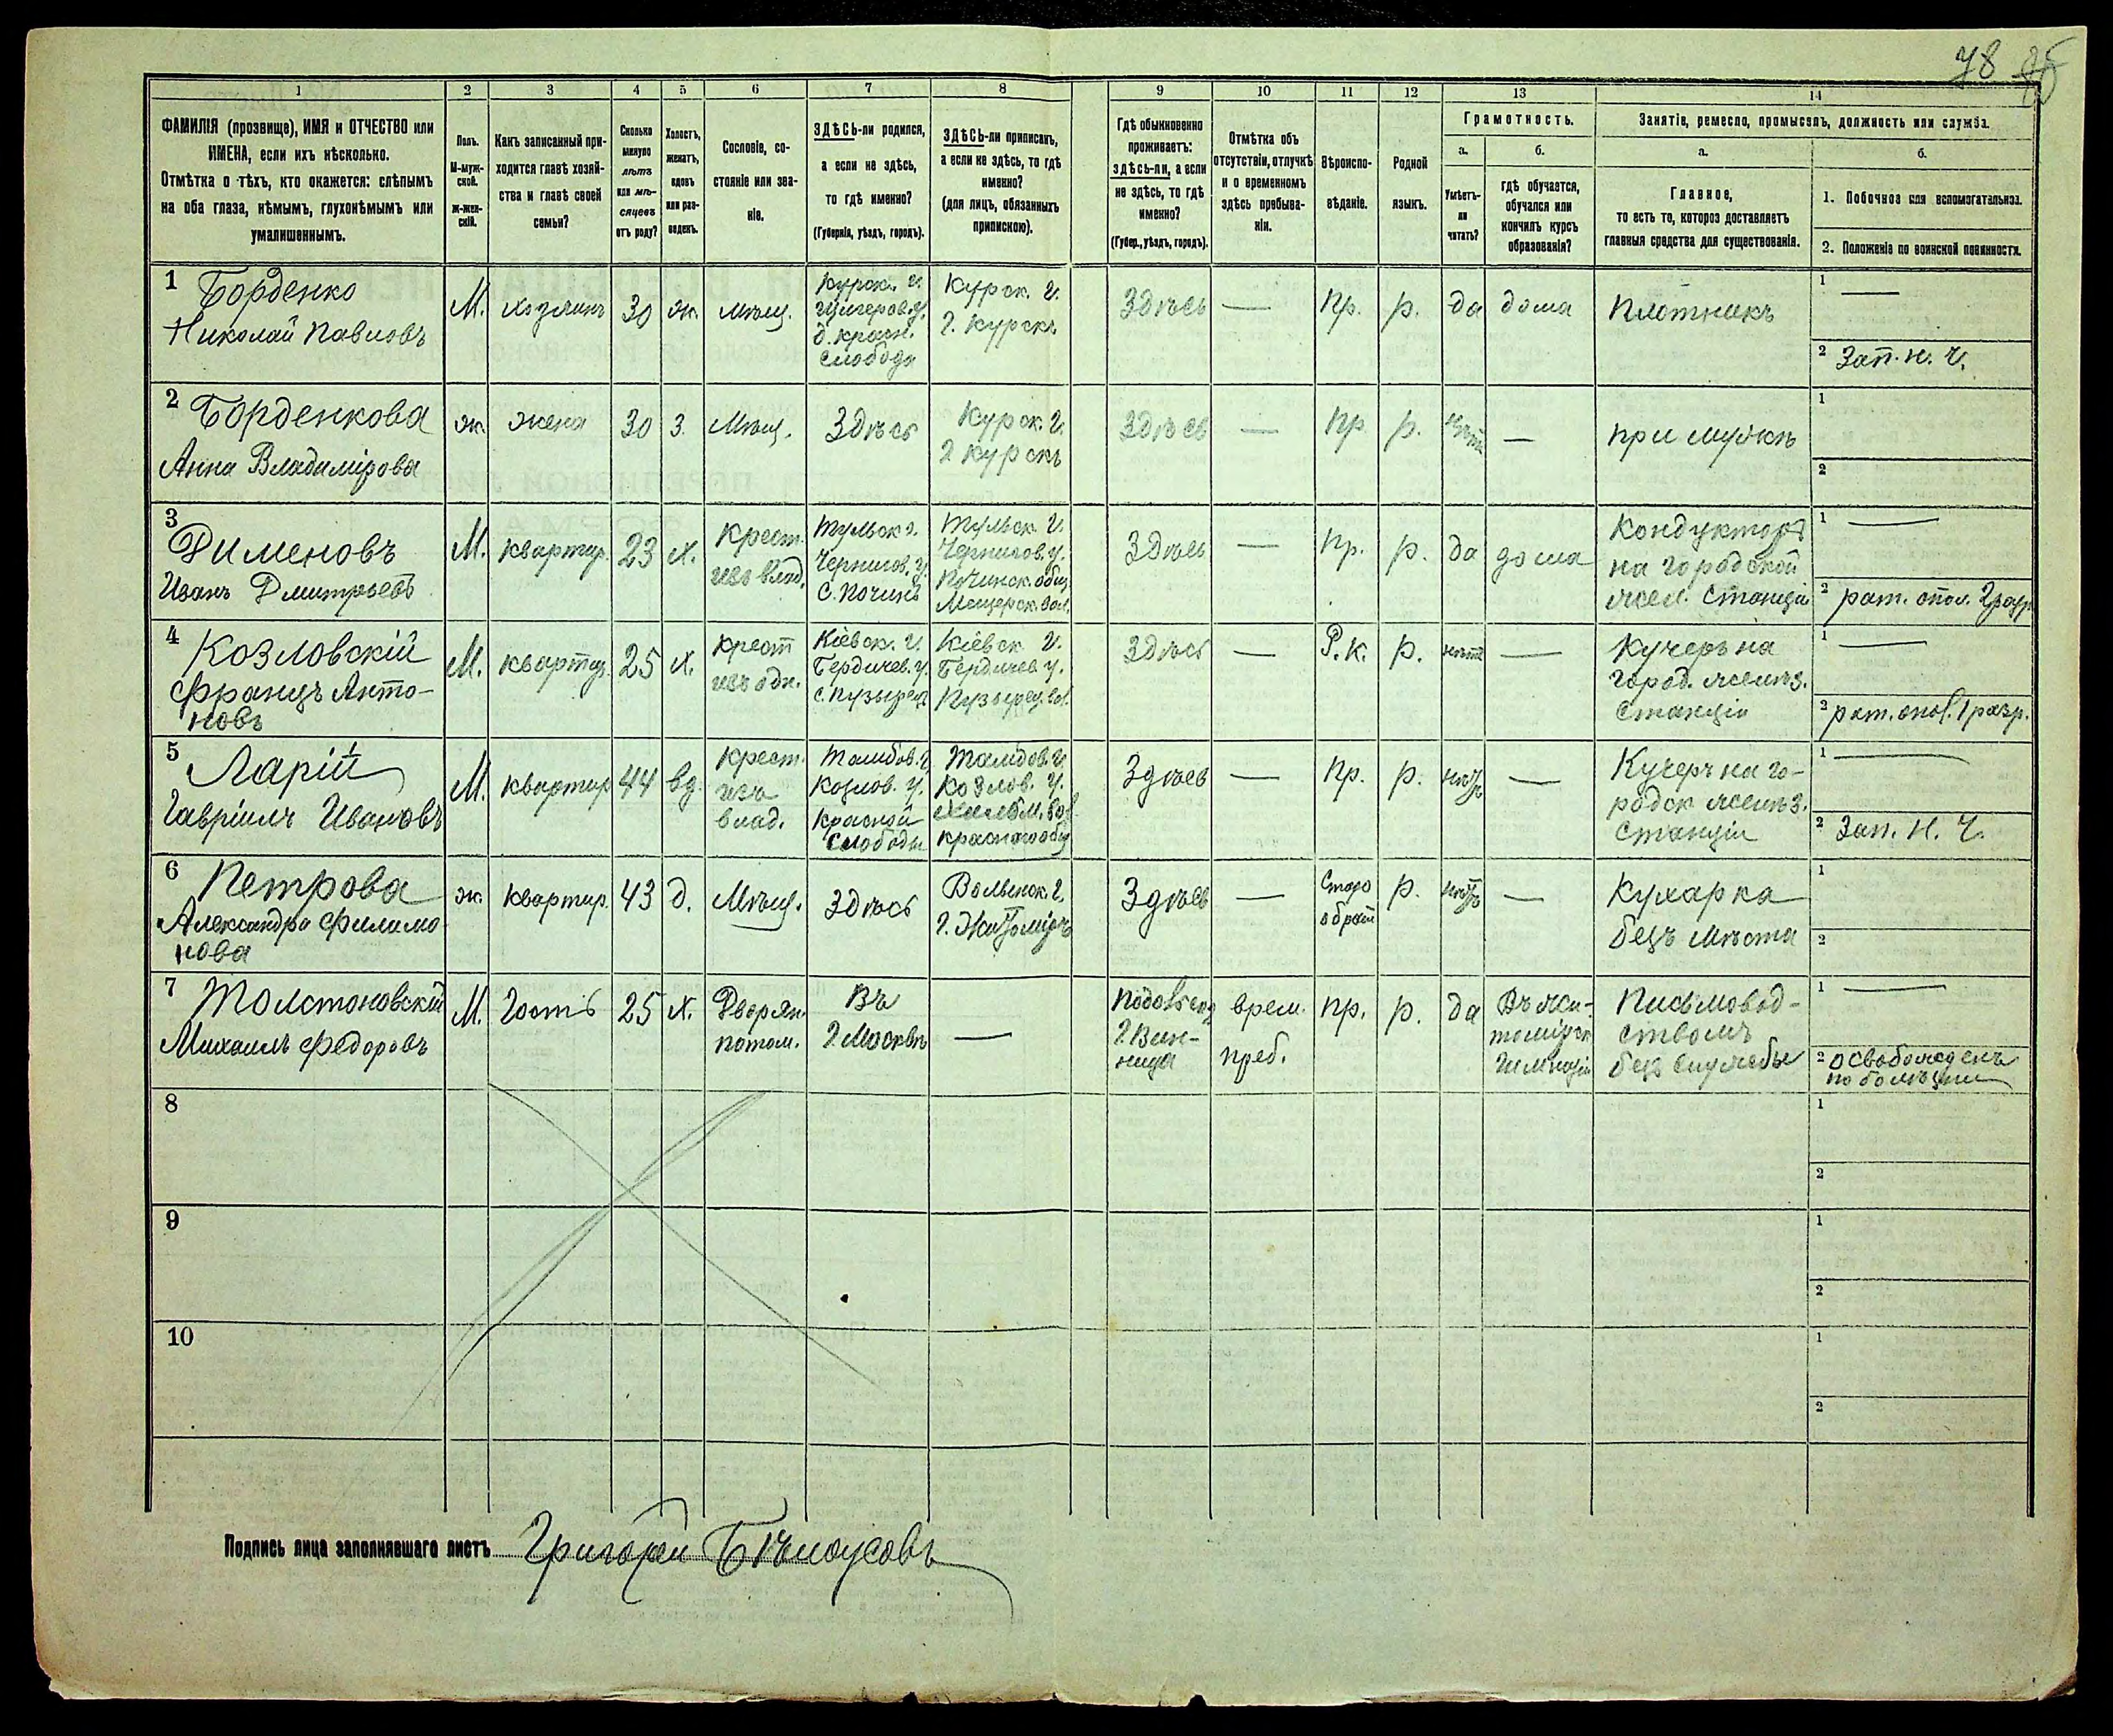 78
1 2 3 4 5 6 7 8 9 10 11 12 13 14
ФАМИЛІЯ (прозвище), ИМЯ и ОТЧЕСТВО или
ИМЕНА, если ихъ нѣсколько.
Отмѣтка о тѣхъ, кто окажется: слѣпымъ
на оба глаза, нѣмымъ, глухонѣмымъ или
умалишеннымъ.
Полъ.
М-муж-
ской.
Ж-жен-
скій.
Какъ записанный при-
ходится главѣ хозяй-
ства и главѣ своей
семьи?
Сколько
минуло
лѣтъ
или мѣ-
сяцевъ
отъ роду?
Холостъ,
женатъ,
вдовъ
или раз-
веденъ.
Сословіе, со-
стояніе или зва-
ніе.
ЗДѢСЬ-ли родился,
а если не здѣсь,
то гдѣ именно?
(Губернія, уѣздъ, городъ).
ЗДѢСЬ-ли приписанъ,
а если не здѣсь, то гдѣ
именно?
(для лицъ, обязанныхъ
припискою).
Гдѣ обыкновенно
проживаетъ:
здѣсь-ли, а если
не здѣсь, то гдѣ
именно?
(Губер., уѣздъ, городъ).
Отмѣтка объ
отсутствіи, отлучкѣ
и о временномъ
здѣсь пребыва-
ніи.
Вѣроиспо-
вѣданіе.
Родной
языкъ.
Грамотность.
а.
Умѣетъ-
ли
читать?
б.
гдѣ обучается,
обучался или
кончилъ курсъ
образованія?
Занятіе, ремесло, промыселъ, должность или служба.
а.
Главное,
то есть то, которое доставляетъ
главныя средства для существованія.
б.
1. Побочное или вспомогательное.
2. Положеніе по воинской повинности.
1 Борденко
Николай Павловъ
М. хозяинъ 30 ж. мѣщ.
Курск. г.
Щигеров.у.
д. красн.
слобода
Курск. г.
г. Курскъ
Здѣсь — Пр. р. да дома Плотникъ
1 —
2 Зап. н. ч.
2 Борденкова
Анна Владимірова
ж. жена 30 З. Мѣщ. Здѣсь
Курск. г.
г Курскъ
Здѣсь — Пр. р. нѣтъ — при мужѣ
1
2
3
Дименовъ
Иванъ Дмитрьевъ
М. квартир. 23 х.
Крест.
изъ влад.
Тульск г.
Чернигов. у.
С. Почин
Тульск. г.
Чернигов. у.
Починск. общ
Мещерск. вол.
Здѣсь — Пр. р. да дома
Кондукторъ
на городской
жел. станціи
1 —
2 рат. опол. 2 разр
4 Козловскій
Францъ Анто-
новъ
М. квартир. 25 х.
Крест
изъ одн.
Кіевск. г.
Бердичев. у.
Кіевск г.
Бердичев у.
Здѣсь — Р. к. р. нѣтъ —
Кучеръ на
город. желѣз.
станціи
1 —
2 рат. опол. 1 разр.
5 Ларій
Гавріилъ Ивановъ
М. квартир 44 вд.
Крест.
изъ
влад.
Тамбов. г.
Козлов. у.
Красной
Слободы
Тамбов. г.
Козлов. у.
Здѣсь — Пр. р. нѣтъ —
Кучеръ на го-
родск желѣз.
станціи
1 —
2 Зап. н. ч.
6 Петрова
Александра Филимо
нова
ж. квартир. 43 д. Мѣщ. Здѣсь
Волынск. г.
г. Житоміръ
Здѣсь —
Старо
обряд
р. нѣтъ —
Кухарка
безъ мѣста
1
2
7 Толстоновскій
Михаилъ Федоровъ
М. Гость 25 х.
Дворян.
потом.
Въ
г. Москвѣ
—
г. Вин-
ница
врем.
преб.
Пр. р. да
Въ жи-
томірск
гимназіи
Письмовод-
ствомъ
безъ службы
1 —
2 освобожденъ
по болѣзни
8
1
2
9
1
2
10
1
2
Подпись лица заполнявшаго листъ Григорій Бѣлоусовъ